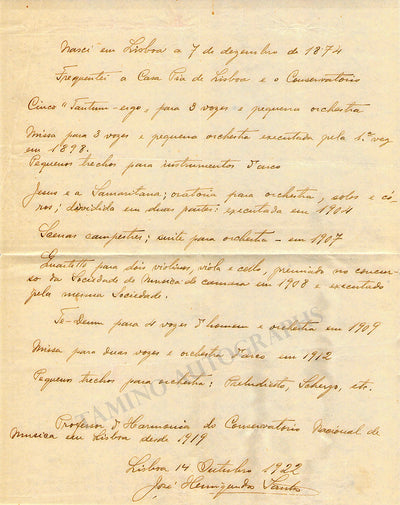 Nasci em Lisboa a 7 de dezembro de 1874
Frequentei a Casa Pia de Lisboa e o Conservatorio
Cinco "Tantum-ergo", para 3 vozes e pequena orchestra
Missa para 3 vozes e pequena orchestra executada pela 1.ª vez
em 1898.
Pequenos trechos para instrumentos d'arco
Jesus e a Samaritana; oratoria para orchestra, solos e cô-
ros; dividida em duas partes: executada em 1904
Scenas campestres; suite para orchestra - em 1907
Quartetto para dois violinos, viola e cello, premiado no concur-
so da Sociedade de musica de camara em 1908 e executado
pela mesma Sociedade.
Te-Deum para 4 vozes d'homem e orchestra em 1909
Missa para duas vozes e orchestra d'arco em 1912
Pequenos trechos para orchestra: Preludiêto, Scherzo, etc.
Professor d'Harmonia do Conservatorio Nacional de
Musica em Lisboa desde 1919
Lisboa 14 Outubro 1922
José Henrique dos Santos
TAMINO AUTOGRAPHS